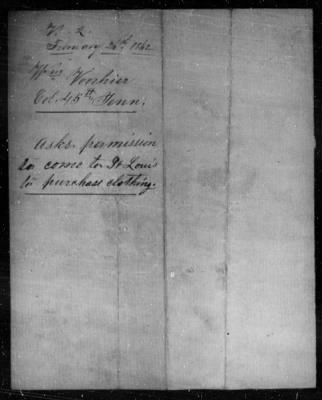 February 26th 1862
Col. 45th Tenn.
Asks permission
to come to St Louis
to purchase clothing.